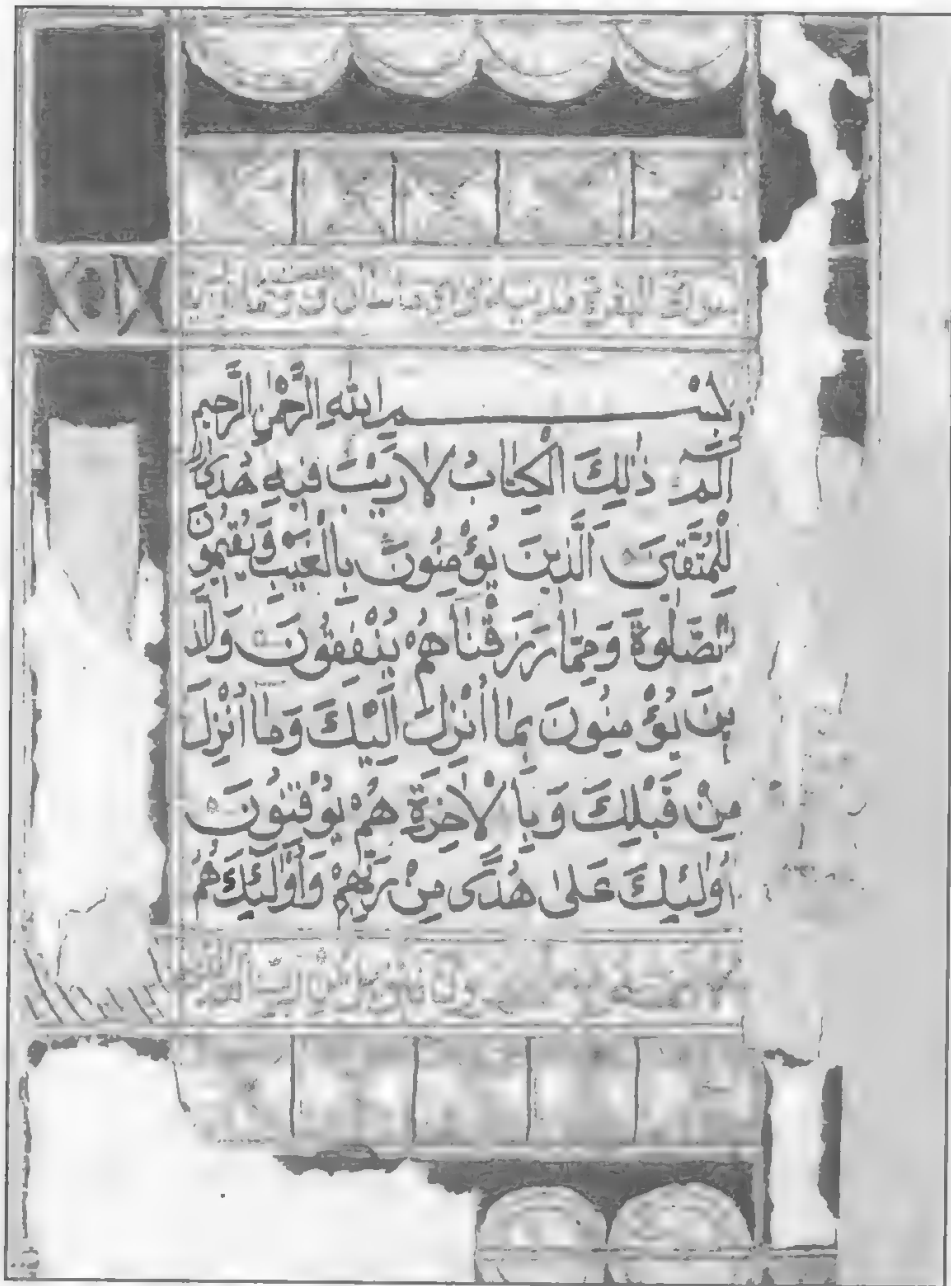 سورة البقرة
بِسْمِ اللهِ الرَّحْمٰنِ الرَّحِيمِ
الٓمٓ ذٰلِكَ الْكِتٰابُ لَا رَيْبَ فِيهِ هُدًى
لِلْمُتَّقِينَ اَلَّذِينَ يُؤْمِنُونَ بِالْغَيْبِ وَيُقِيمُونَ
الصَّلٰوةَ وَمِمّٰا رَزَقْنٰاهُمْ يُنْفِقُونَ وَالَّذ
ِينَ يُؤْمِنُونَ بِمٰا اُنْزِلَ اِلَيْكَ وَمٰا اُنْزِلَ
مِنْ قَبْلِكَ وَبِالْاٰخِرَةِ هُمْ يُوقِنُونَ
اُولٰئِكَ عَلٰى هُدًى مِنْ رَبِّهِمْ وَاُولٰئِكَ هُمُ